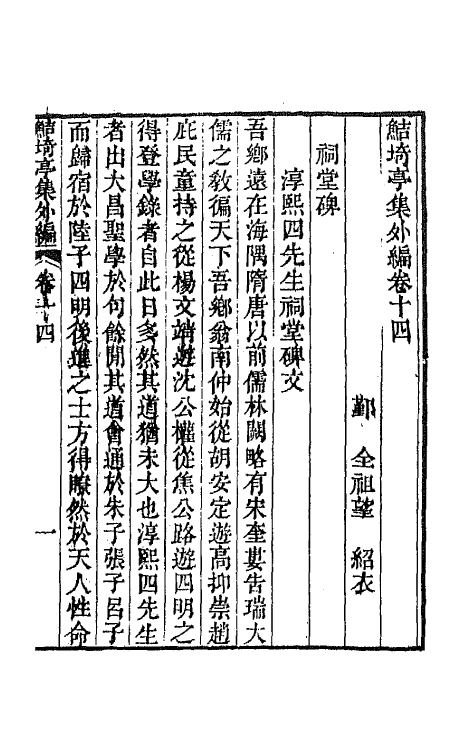 鮚埼亭集外編卷十四
鄞　全祖望　紹衣
祠堂碑
淳熙四先生祠堂碑文
吾鄉遠在海隅隋唐以前儒林闕略有宋奎婁告瑞大
儒之敎徧天下吾鄉翁南仲始從胡安定遊高抑崇趙
庇民童持之從楊文靖遊沈公權從焦公路遊四明之
得登學錄者自此日多然其道猶未大也淳熙四先生
者出大昌聖學於句餘閒其道會通於朱子張子呂子
而歸宿於陸子四明後進之士方得瞭然於天人性命
鮚埼亭集外編　卷十四　一